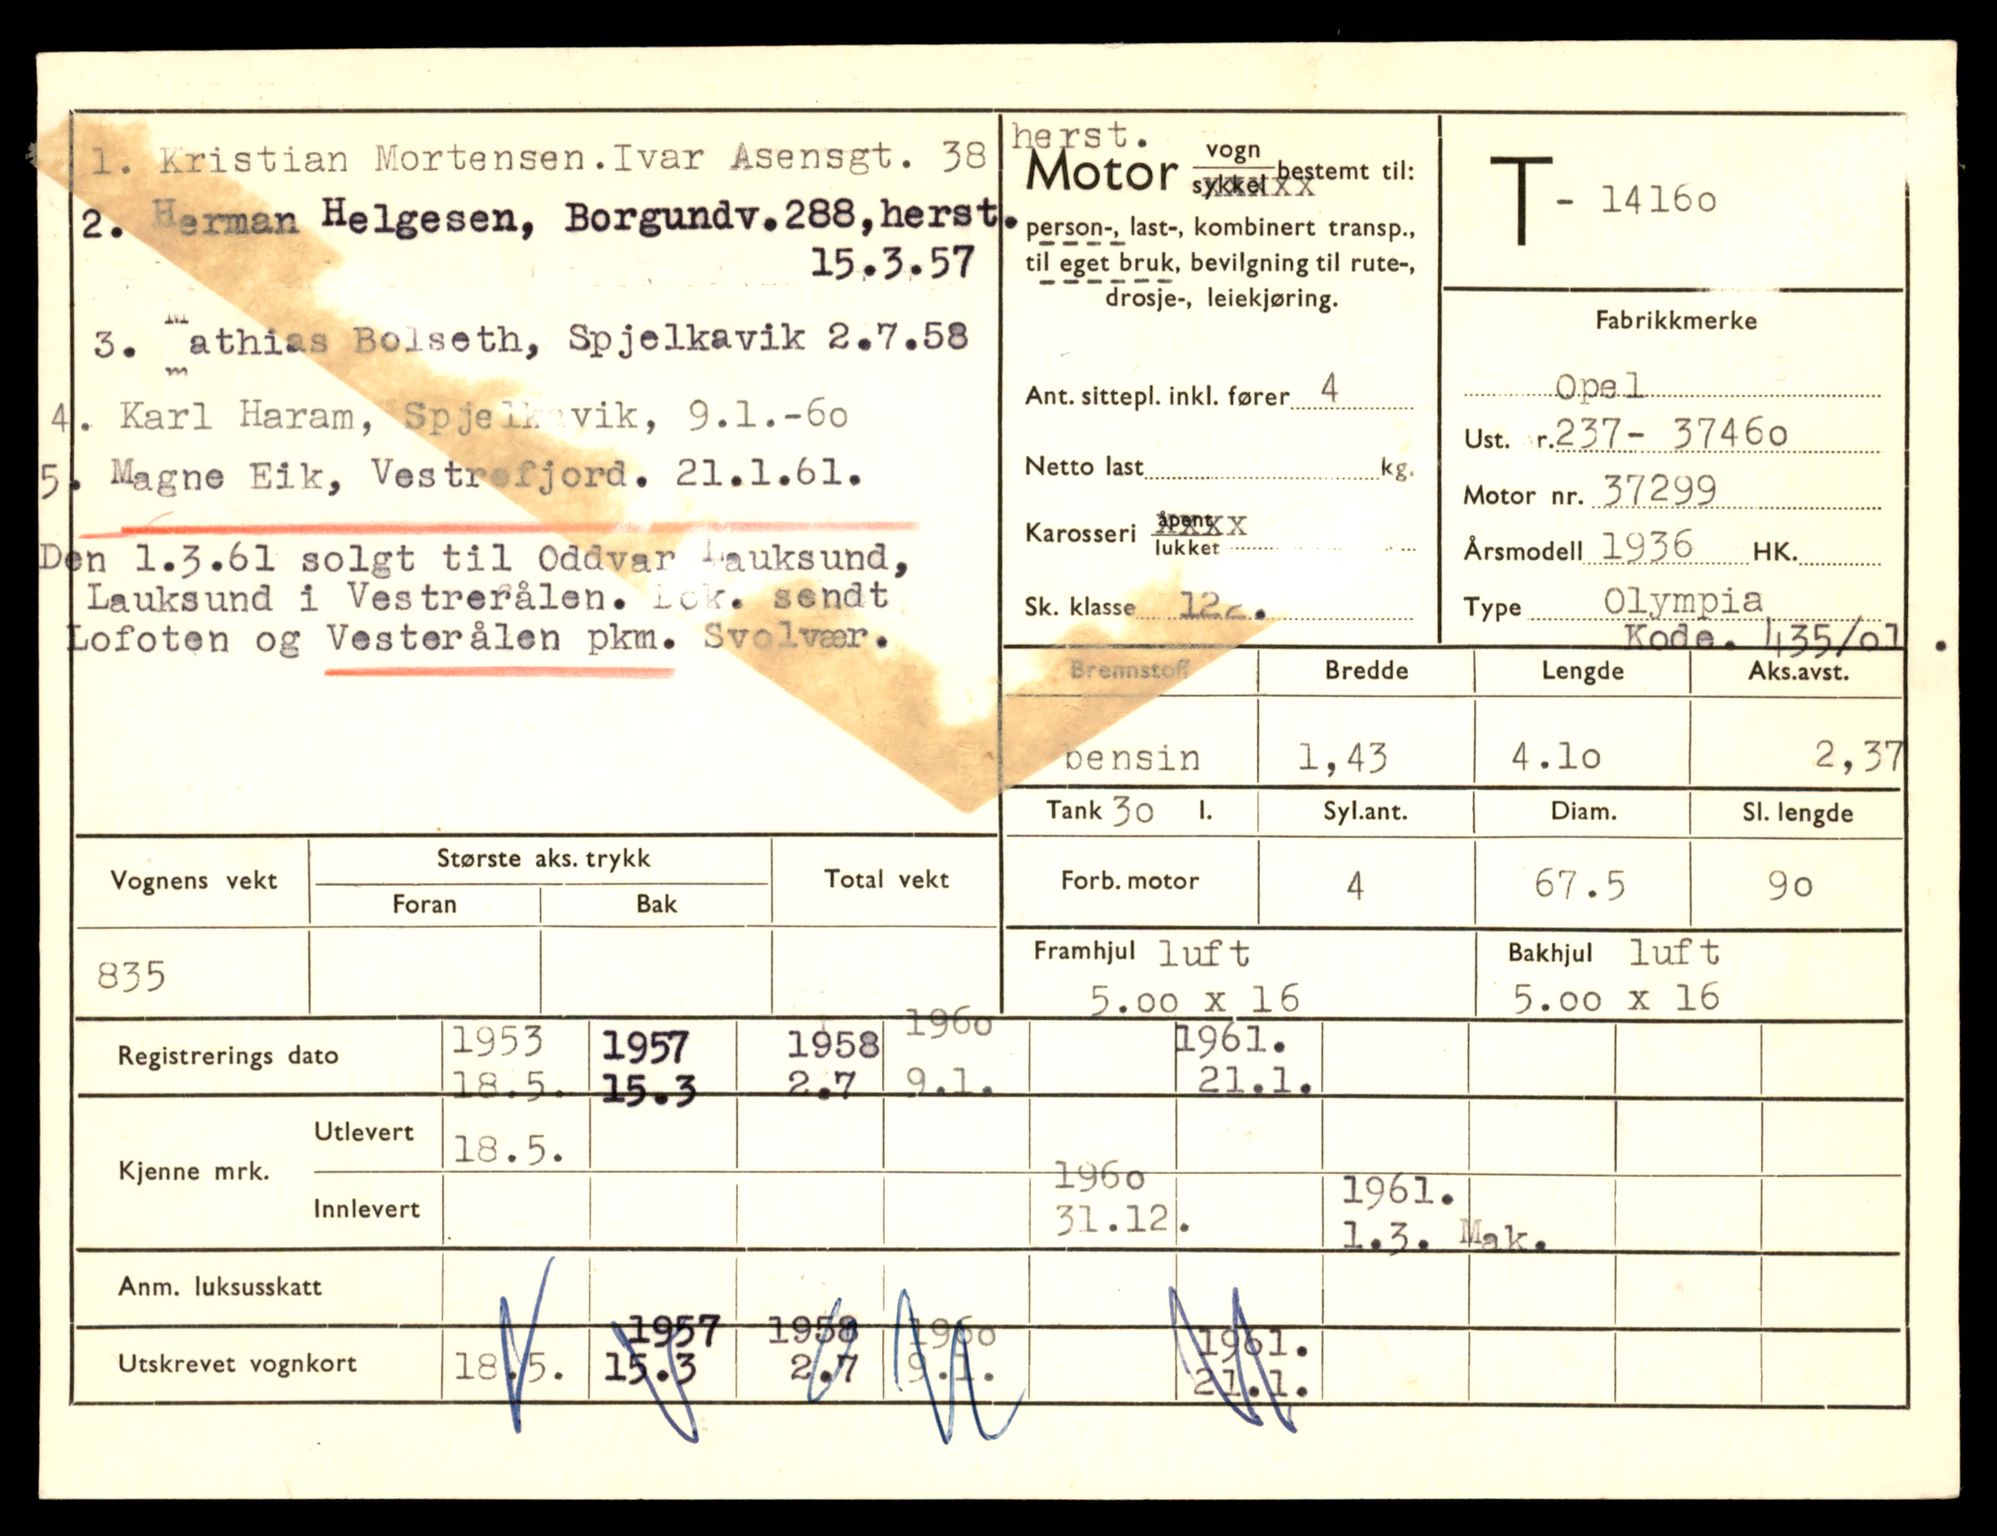 1. Kristian Mortensen.Ivar Asensgt. 38 herst.
2. Herman Helgesen, Borgundv.288,herst.
15.3.57
3. Mathias Bolseth, Spjelkavik 2.7.58
4. Karl Haram, Spjelkavik, 9.1.-6o
5. Magne Eik, Vestrefjord. 21.1.61.
Den 1.3.61 solgt til Oddvar Lauksund,
Lauksund i Vestrerålen. Dok. sendt
Lofoten og Vesterålen pkm. Svolvær.
Motor vogn sykkel bestemt til:
person-, last-, kombinert transp.,
til eget bruk, bevilgning til rute-,
drosje-, leiekjøring.
Ant. sittepl. inkl. fører 4
Netto last kg.
Karosseri åpent xxxx
lukket
Sk. klasse 122.
T - 1416o
Fabrikkmerke
Opel
Ust. nr. 237- 3746o
Motor nr. 37299
Årsmodell 1936 HK.
Type Olympia
Kode. 435/o1 .
Brennstoff Bredde Lengde Aks.avst.
bensin 1,43 4.1o 2,37
Tank 3o l. Syl.ant. Diam. Sl. lengde
Forb. motor 4 67.5 9o
Framhjul luft Bakhjul luft
5.oo x 16 5.oo x 16
Vognens vekt Største aks. trykk Total vekt
Foran Bak
835
Registrerings dato 1953 1957 1958 196o 1961.
18.5. 15.3 2.7 9.1. 21.1.
Kjenne mrk. Utlevert 18.5.
Innlevert 196o 1961.
31.12. 1.3. Mak.
Anm. luksusskatt
1957 1958 196o 1961.
Utskrevet vognkort 18.5. 15.3 2.7 9.1. 21.1.